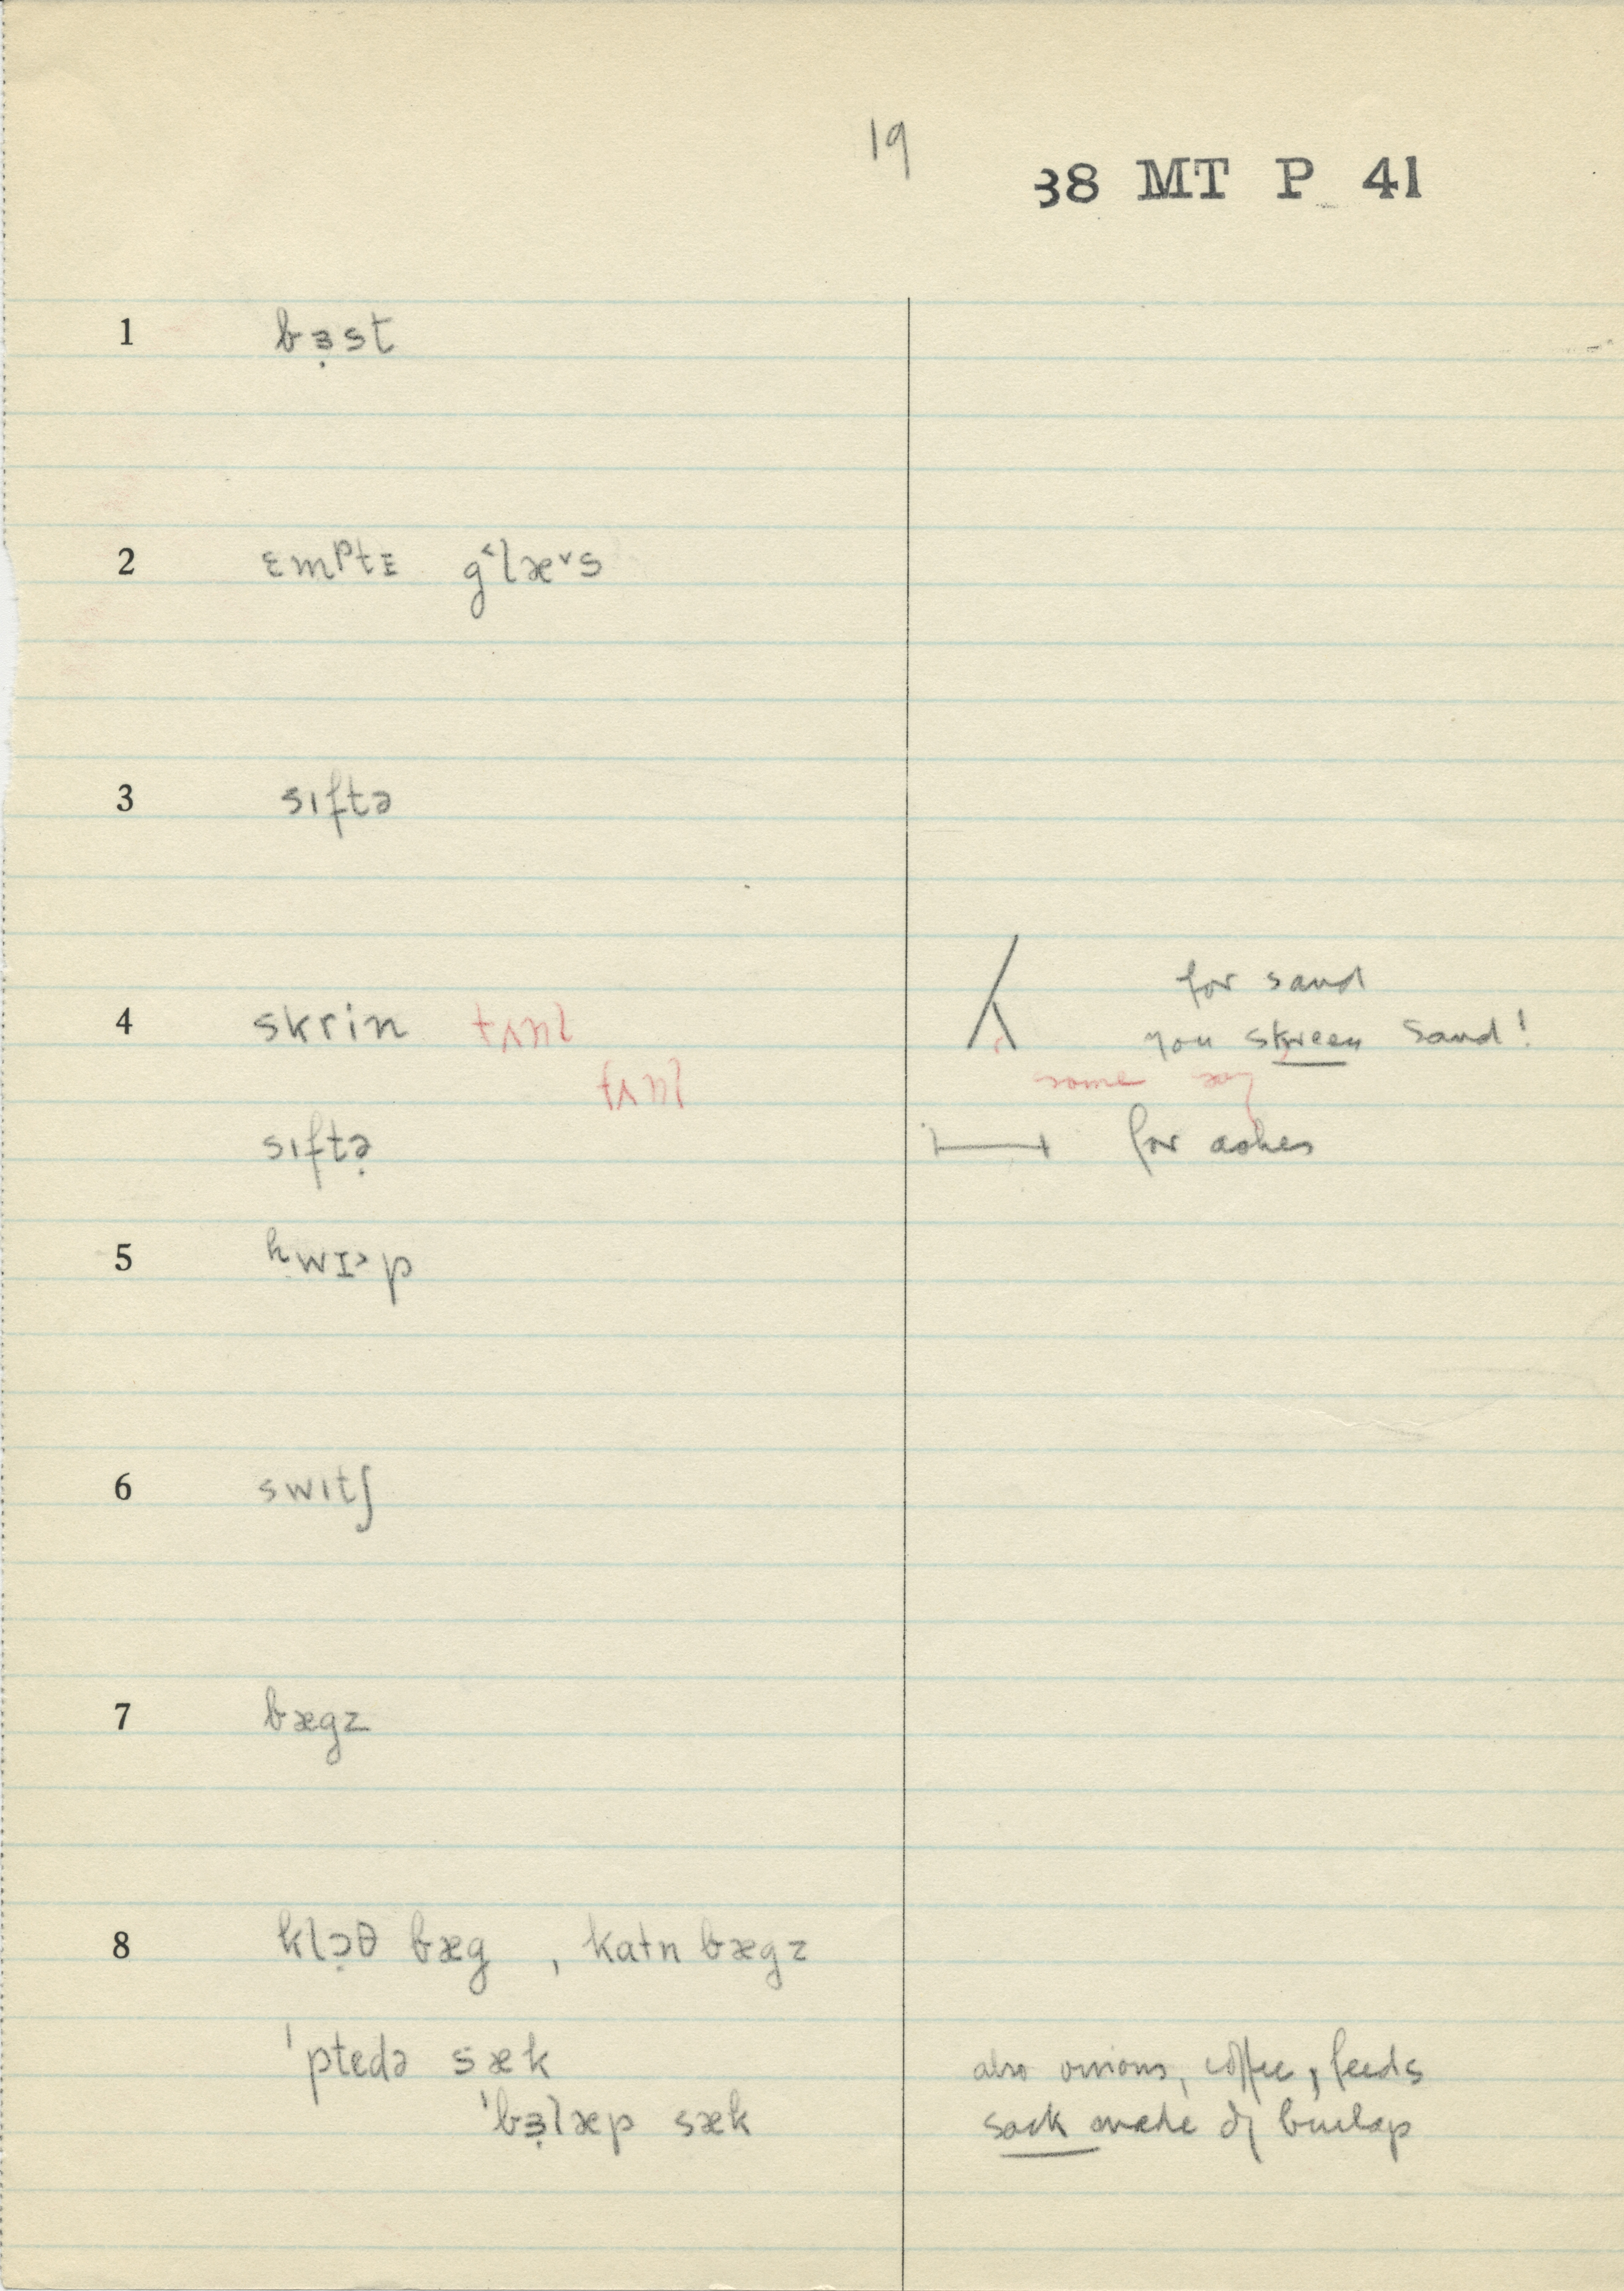 19
38 MT P 41
1 bɜ̣st
2 ɛmᵖtɪ g˂læ˅s
3 sɪftə
4 skrin for sand
you skreen sand!
some say
sɪftə̣ for ashes
5 ʰwɪ˃p
6 swɪtʃ
7 bægz
8 klɔ̣θ bæg , katn bægz
ˈptedə sæk also onions, coffee, feeds
ˈbɜ̣læp sæk sack made of burlap